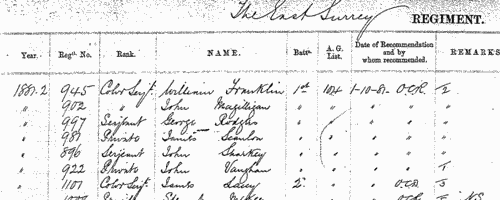 The East Surrey REGIMENT.
Year. Regtl. No. Rank. NAME. Batn. A. G. List. Date of Recommendation and by whom recommended. REMARKS
1881-2 945 Color Serjt. William Franklin 1st 104 1-10-81 O.C.R. 2
" 902 " John Magilligan " " " " "
" 997 Serjeant George Rodgers " " " " "
" 981 Private James Scanlon " " " " "
" 896 Serjeant John Sharkey " " " " "
" 922 Private John Vaughan " " " " 1
" 1101 Color Serjt. James Lacey 2 " " O.C.R. 3